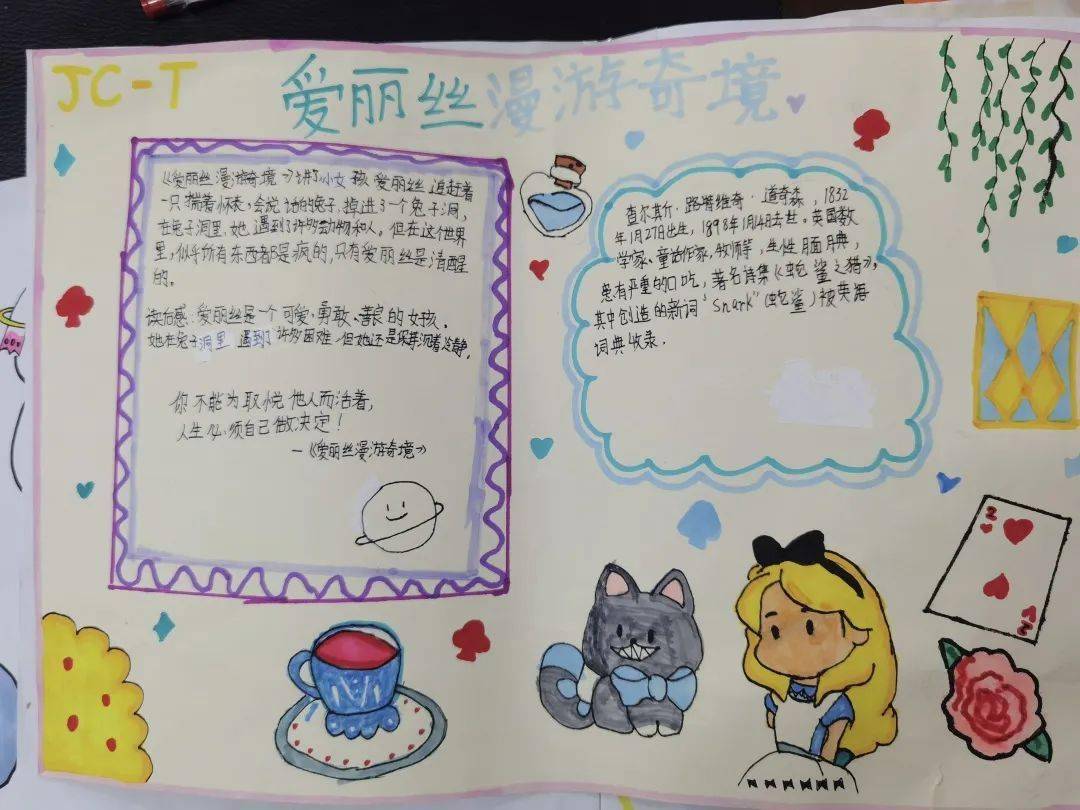 JC-T
爱丽丝漫游奇境
《爱丽丝漫游奇境》讲了小女孩爱丽丝追赶着
一只揣着怀表,会说话的兔子,掉进了一个兔子洞,
在兔子洞里,她遇到了许多动物和人。但在这个世界
里,似乎所有东西都是疯的,只有爱丽丝是清醒
的。
读后感:爱丽丝是一个可爱、勇敢、善良的女孩。
她在兔子洞里遇到了许多困难,但她还是保持沉着冷静。
你不能为取悦他人而活着,
人生必须自己做决定!
—《爱丽丝漫游奇境》
查尔斯·路特维奇·道奇森,1832
年1月27日出生,1898年1月14日去世。英国数
学家、童话作家,牧师等,生性腼腆,
患有严重的口吃,著名诗集《蛇鲨之猎》,
其中创造的新词"Snark"(蛇鲨)被英语
词典收录.
2
2